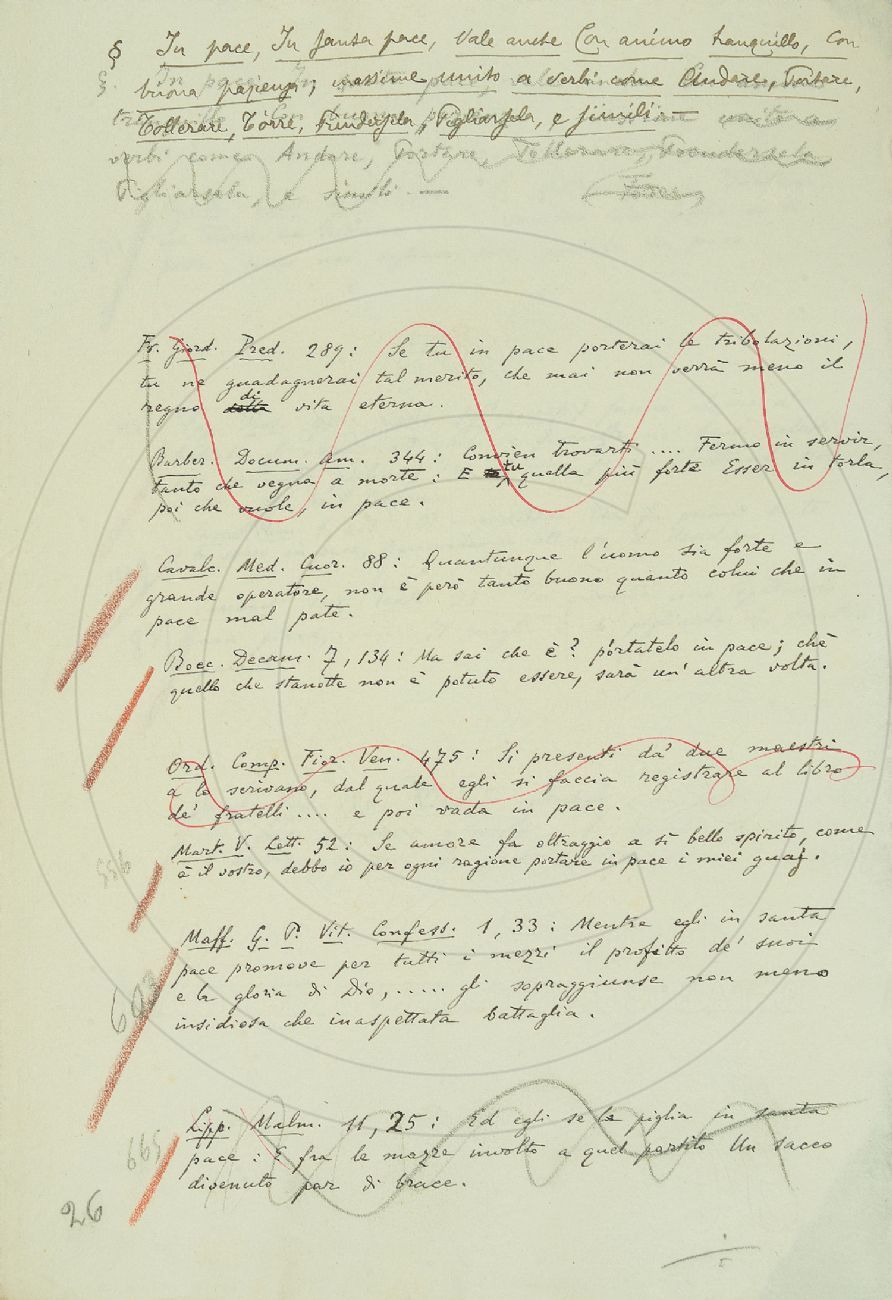 § In pace, In santa pace, vale anche Con animo tranquillo, Con
buona pazienza; massime unito a verbi come Andare, Portare,
Tollerare, Torre, Prendersela, Pigliarsela, e simili —
verbi come Andare, Portare, Tollerare, Prendersela
Pigliarsela, e simili. —
Fr. Giord. Pred. 289: Se tu in pace porterai le tribolazioni,
tu ne guadagnerai tal merito, che mai non verrà meno il
regno di vita eterna.
Barber. Docum. am. 344: Convien trovarti .... Fermo in servir,
tanto che vegna a morte: E tu, quella più forte Esser in torla,
poi che vuole, in pace.
Cavalc. Med. Cuor. 88: Quantunque l'uomo sia forte e
grande operatore, non è però tanto buono quanto colui che in
pace mal pate.
Bocc. Decam. 7, 134: Ma sai che è? pòrtatelo in pace; chè
quello che stanotte non è potuto essere, sarà un'altra volta.
Ord. Comp. Fior. Ven. 475: Si presenti da' due maestri
a lo scrivano, dal quale egli si faccia registrare al libro
de' fratelli .... e poi vada in pace.
Mart. V. Lett. 52: Se amore fa oltraggio a sì bello spirito, come
è il vostro, debbo io per ogni ragione portare in pace i miei guaj.
Maff. G. P. Vit. Confess. 1, 33: Mentre egli in santa
pace promove per tutti i mezzi il profitto de' suoi
e la gloria di Dio, ..... gli sopraggiunse non meno
insidiosa che inaspettata battaglia.
693
Lipp. Malm. 11, 25: Ed egli se la piglia in santa
pace: E fra le mazze involto a quel partito Un sacco
divenuto par di brace.
665
26